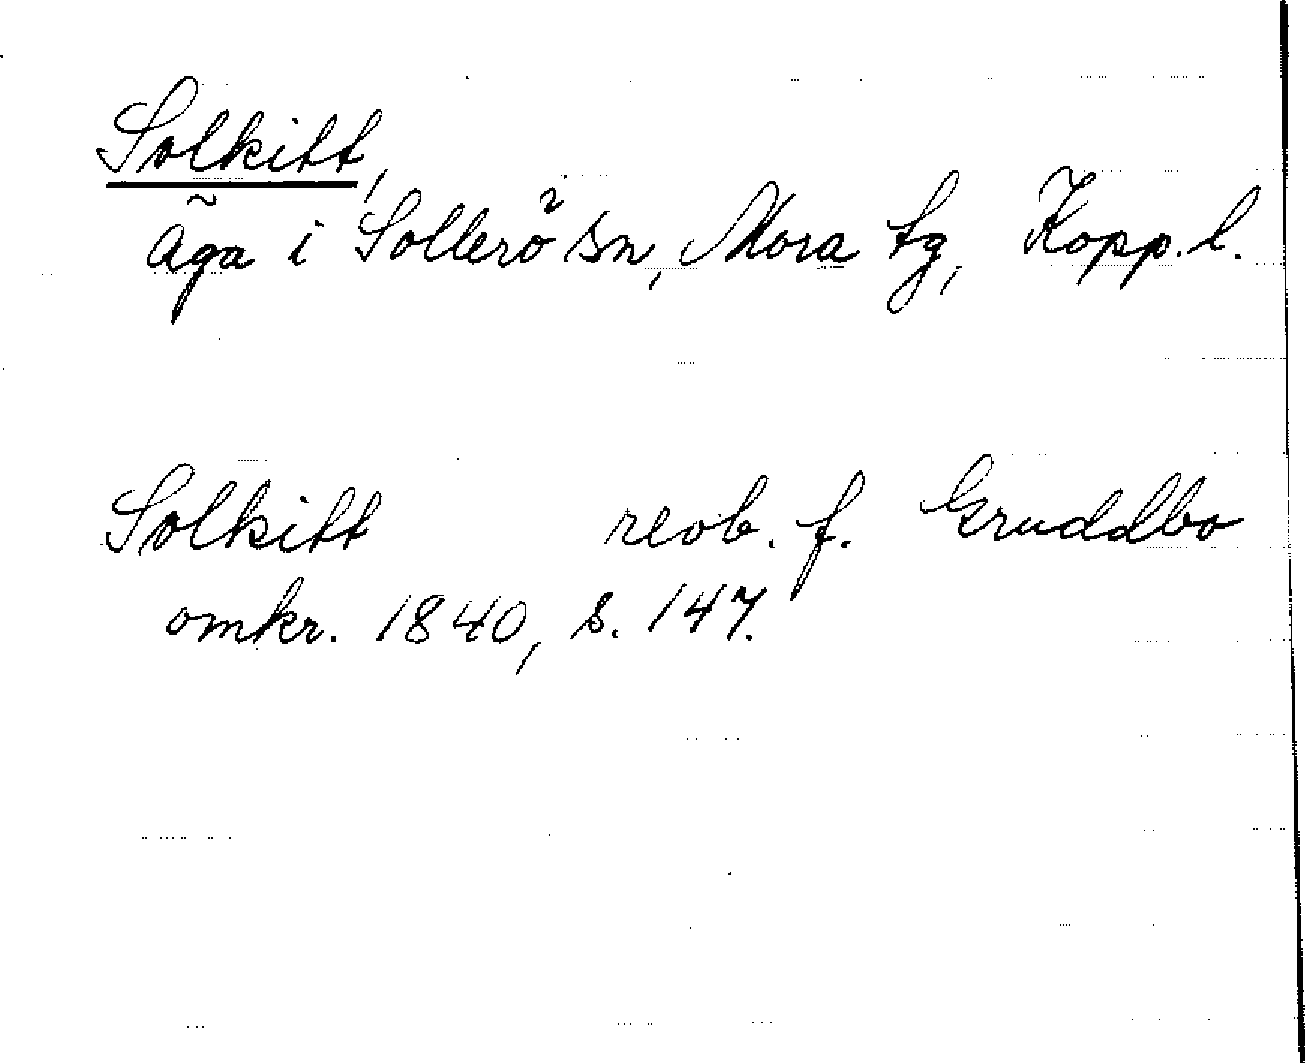 Solkitt,
äga i Sollerö sn, Mora tg, Kopp. l.
Solkitt revb. f. Gruddbo
omkr. 1840, s. 147.